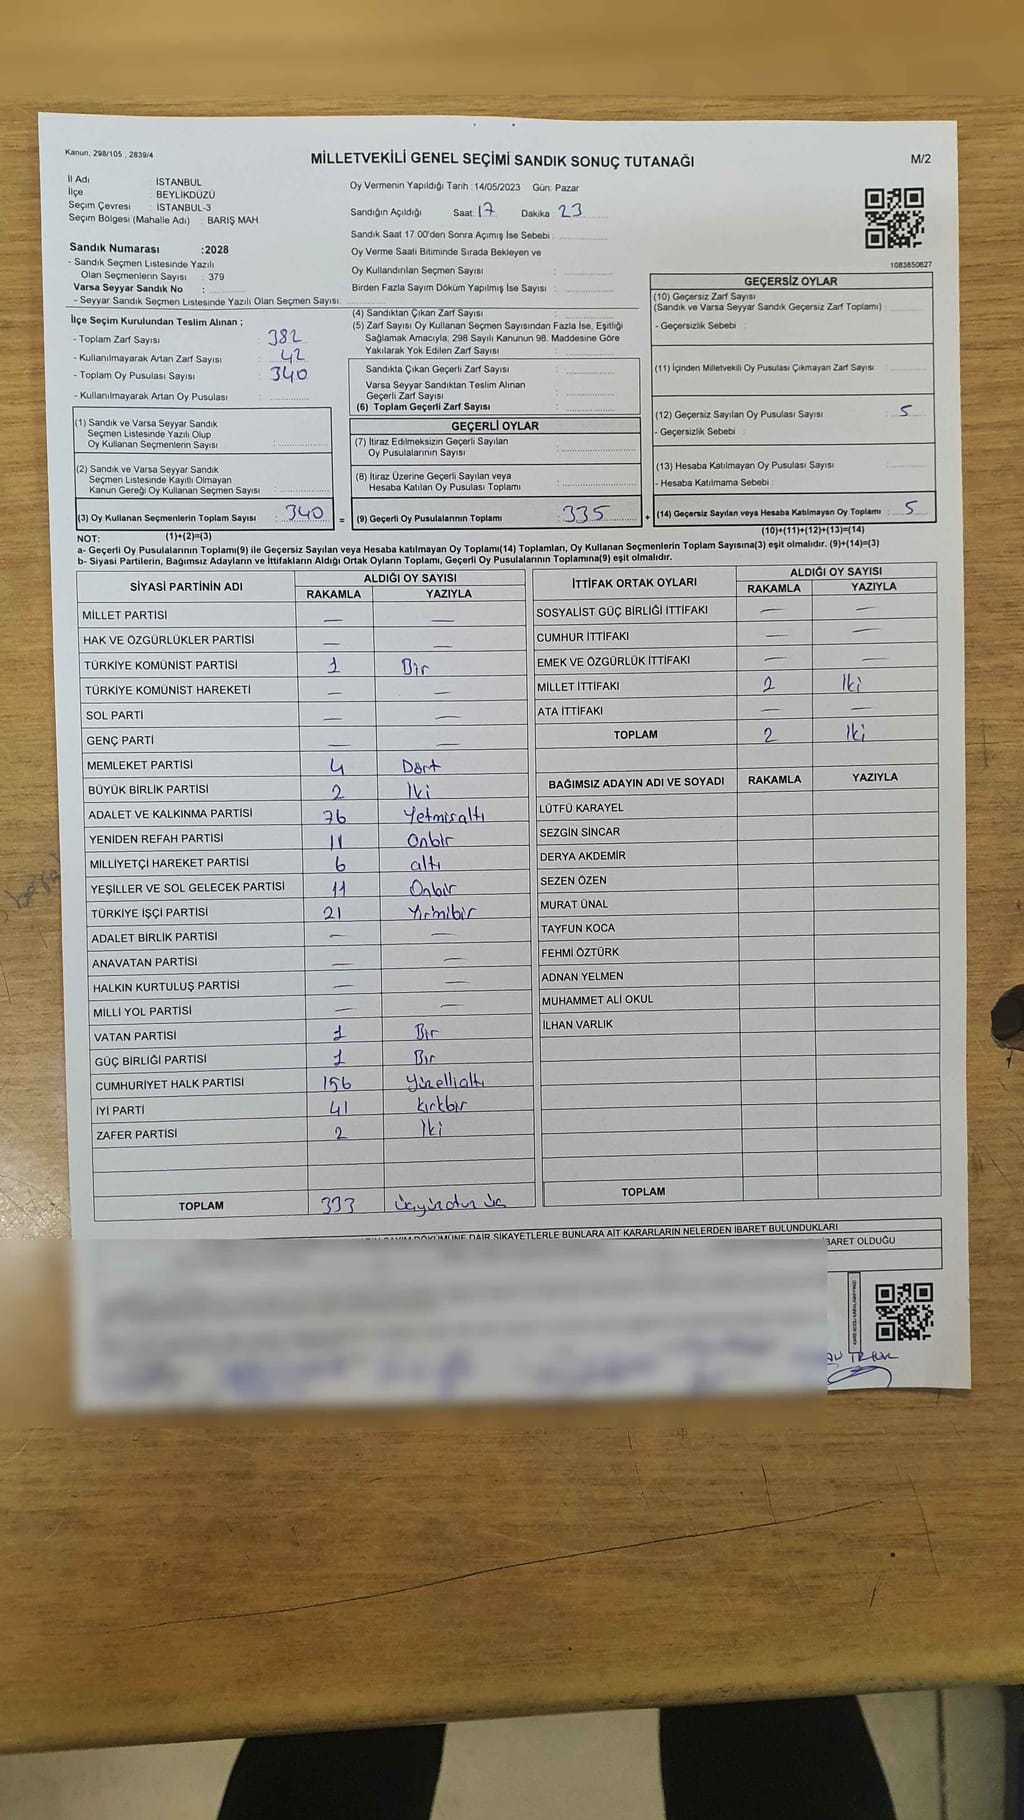 Kanun: 298/105 , 2839/4
MİLLETVEKİLİ GENEL SEÇİMİ SANDIK SONUÇ TUTANAĞI
M/2
İl Adı : İSTANBUL
İlçe : BEYLİKDÜZÜ
Seçim Çevresi : İSTANBUL-3
Seçim Bölgesi (Mahalle Adı) : BARIŞ MAH.
Sandık Numarası :2028
- Sandık Seçmen Listesinde Yazılı
Olan Seçmenlerin Sayısı : 379
Varsa Seyyar Sandık No :
- Seyyar Sandık Seçmen Listesinde Yazılı Olan Seçmen Sayısı:
Oy Vermenin Yapıldığı Tarih :14/05/2023 Gün: Pazar
Sandığın Açıldığı Saat 17 Dakika 23
Sandık Saat 17:00'den Sonra Açımış İse Sebebi :
Oy Verme Saati Bitiminde Sırada Bekleyen ve
Oy Kullandırılan Seçmen Sayısı :
Birden Fazla Sayım Döküm Yapılmış İse Sayısı :
1083850627
İlçe Seçim Kurulundan Teslim Alınan ;
- Toplam Zarf Sayısı : 382
- Kullanılmayarak Artan Zarf Sayısı : 42
- Toplam Oy Pusulası Sayısı : 340
- Kullanılmayarak Artan Oy Pusulası :
(1) Sandık ve Varsa Seyyar Sandık
Seçmen Listesinde Yazılı Olup
Oy Kullanan Seçmenlerin Sayısı :
(2) Sandık ve Varsa Seyyar Sandık
Seçmen Listesinde Kayıtlı Olmayan
Kanun Gereği Oy Kullanan Seçmen Sayısı :
(3) Oy Kullanan Seçmenlerin Toplam Sayısı : 340 =
(1)+(2)=(3)
(4) Sandıktan Çıkan Zarf Sayısı :
(5) Zarf Sayısı Oy Kullanan Seçmen Sayısından Fazla İse, Eşitliği
Sağlamak Amacıyla; 298 Sayılı Kanunun 98. Maddesine Göre
Yakılarak Yok Edilen Zarf Sayısı :
Sandıkta Çıkan Geçerli Zarf Sayısı :
Varsa Seyyar Sandıktan Teslim Alınan
Geçerli Zarf Sayısı :
(6) Toplam Geçerli Zarf Sayısı :
GEÇERLİ OYLAR
(7) İtiraz Edilmeksizin Geçerli Sayılan
Oy Pusulalarının Sayısı :
(8) İtiraz Üzerine Geçerli Sayılan veya
Hesaba Katılan Oy Pusulası Toplamı :
(9) Geçerli Oy Pusulalarının Toplamı : 335 +
GEÇERSİZ OYLAR
(10) Geçersiz Zarf Sayısı
(Sandık ve Varsa Seyyar Sandık Geçersiz Zarf Toplamı) :
- Geçersizlik Sebebi :
(11) İçinden Milletvekili Oy Pusulası Çıkmayan Zarf Sayısı :
(12) Geçersiz Sayılan Oy Pusulası Sayısı : 5
- Geçersizlik Sebebi :
(13) Hesaba Katılmayan Oy Pusulası Sayısı :
- Hesaba Katılmama Sebebi :
(14) Geçersiz Sayılan veya Hesaba Katılmayan Oy Toplamı : 5
(10)+(11)+(12)+(13)=(14)
NOT:
a- Geçerli Oy Pusulalarının Toplamı(9) ile Geçersiz Sayılan veya Hesaba katılmayan Oy Toplamı(14) Toplamları, Oy Kullanan Seçmenlerin Toplam Sayısına(3) eşit olmalıdır. (9)+(14)=(3)
b- Siyasi Partilerin, Bağımsız Adayların ve İttifakların Aldığı Ortak Oyların Toplamı, Geçerli Oy Pusulalarının Toplamına(9) eşit olmalıdır.
SİYASİ PARTİNİN ADI ALDIĞI OY SAYISI
RAKAMLA YAZIYLA
MİLLET PARTİSİ — —
HAK VE ÖZGÜRLÜKLER PARTİSİ — —
TÜRKİYE KOMÜNİST PARTİSİ 1 Bir
TÜRKİYE KOMÜNİST HAREKETİ — —
SOL PARTİ — —
GENÇ PARTİ — —
MEMLEKET PARTİSİ 4 Dört
BÜYÜK BİRLİK PARTİSİ 2 İki
ADALET VE KALKINMA PARTİSİ 76 Yetmisaltı
YENİDEN REFAH PARTİSİ 11 Onbir
MİLLİYETÇİ HAREKET PARTİSİ 6 altı
YEŞİLLER VE SOL GELECEK PARTİSİ 11 Onbir
TÜRKİYE İŞÇİ PARTİSİ 21 Yirmibir
ADALET BİRLİK PARTİSİ — —
ANAVATAN PARTİSİ — —
HALKIN KURTULUŞ PARTİSİ — —
MİLLİ YOL PARTİSİ — —
VATAN PARTİSİ 1 Bir
GÜÇ BİRLİĞİ PARTİSİ 1 Bir
CUMHURİYET HALK PARTİSİ 156 Yüzellialtı
İYİ PARTİ 41 kırkbir
ZAFER PARTİSİ 2 İki
TOPLAM 333
İTTİFAK ORTAK OYLARI ALDIĞI OY SAYISI
RAKAMLA YAZIYLA
SOSYALİST GÜÇ BİRLİĞİ İTTİFAKI — —
CUMHUR İTTİFAKI — —
EMEK VE ÖZGÜRLÜK İTTİFAKI — —
MİLLET İTTİFAKI 2 İki
ATA İTTİFAKI — —
TOPLAM 2 İki
BAĞIMSIZ ADAYIN ADI VE SOYADI RAKAMLA YAZIYLA
LÜTFÜ KARAYEL
SEZGİN SİNCAR
DERYA AKDEMİR
SEZEN ÖZEN
MURAT ÜNAL
TAYFUN KOCA
FEHMİ ÖZTÜRK
ADNAN YELMEN
MUHAMMET ALİ OKUL
İLHAN VARLIK
TOPLAM
DÖKÜMÜNE DAİR ŞİKAYETLERLE BUNLARA AİT KARARLARIN NELERDEN İBARET BULUNDUKLARI
İBARET OLDUĞU